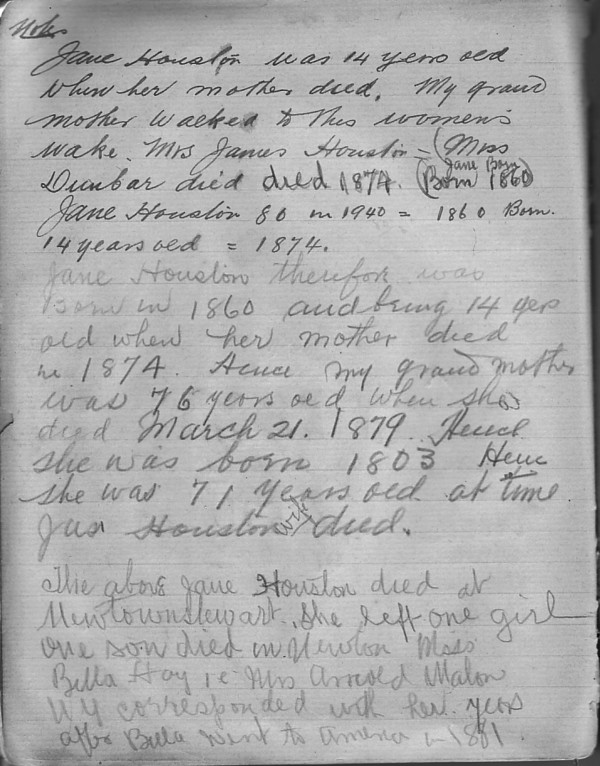 Notes
Jane Houston was 14 years old
when her mother died. My grand
mother walked to this women's
wake. Mrs James Houston = (Miss
Dunbar died died 1874. (Jane Born
(Born 1860)
Jane Houston 80 in 1940 = 1860 Born.
14 years old = 1874.
Jane Houston therefore was
Born in 1860 and being 14 yers
old when her mother died
in 1874. Hence my grand mother
was 76 years oed when she
died March 21. 1879. Hence
she was born 1803 Hence
she was 71 years oed at time
Jas Houston wife died.
The above Jane Houston died at
Newtownstewart. She left one girl
one son died in Newton Miss
Bella Hay i e Mrs Arnold Malon
NY corresponded with her years
after Bella went to America in 1881.